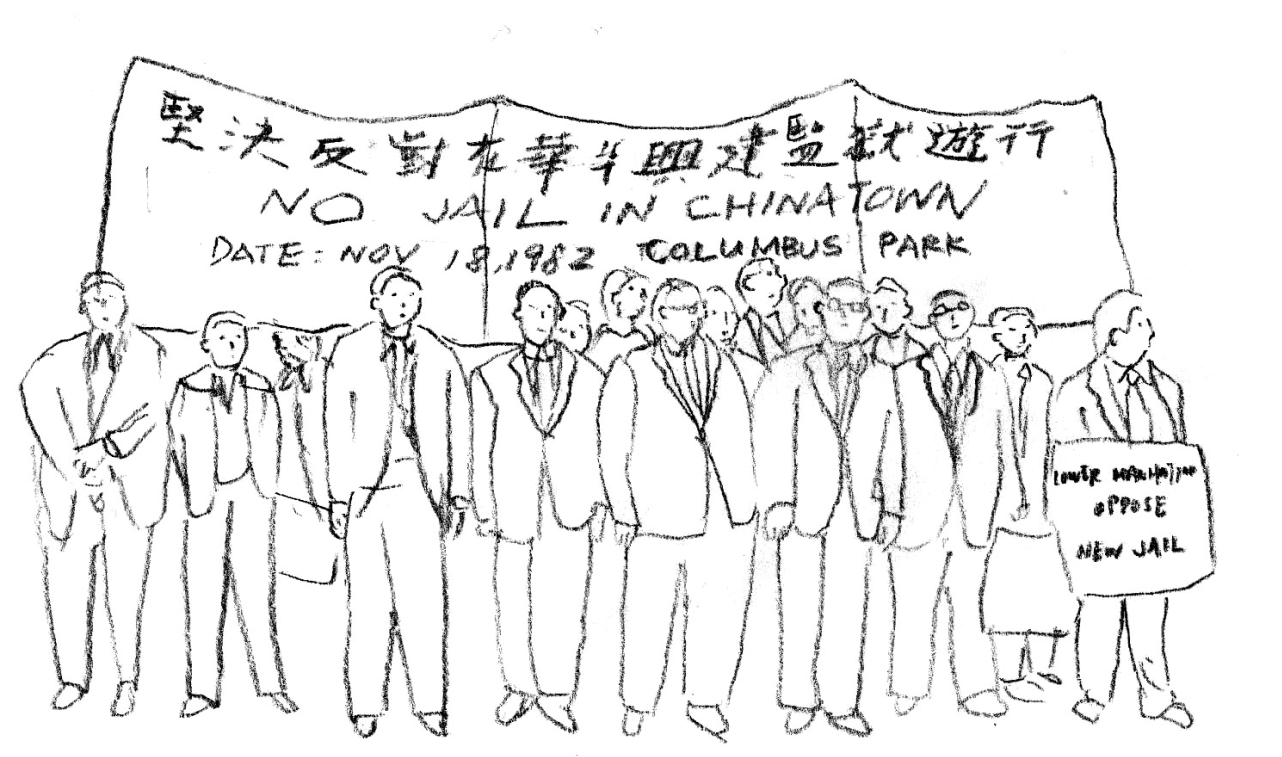 堅決反對在華埠興建監獄遊行
NO JAIL IN CHINATOWN
DATE: NOV 18, 1982 COLUMBUS PARK
LOWER MANHATTAN
OPPOSE
NEW JAIL